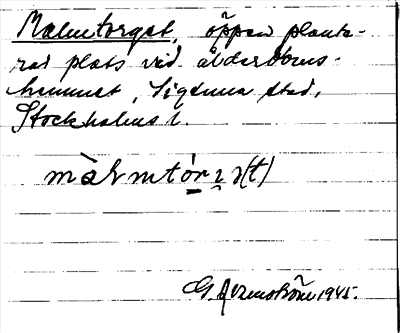 Malmtorget, öppen plante-
rad plats vid ålderdoms-
hemmet, Sigtuna stad,
Stockholms l.
G. Arvenström 1945.